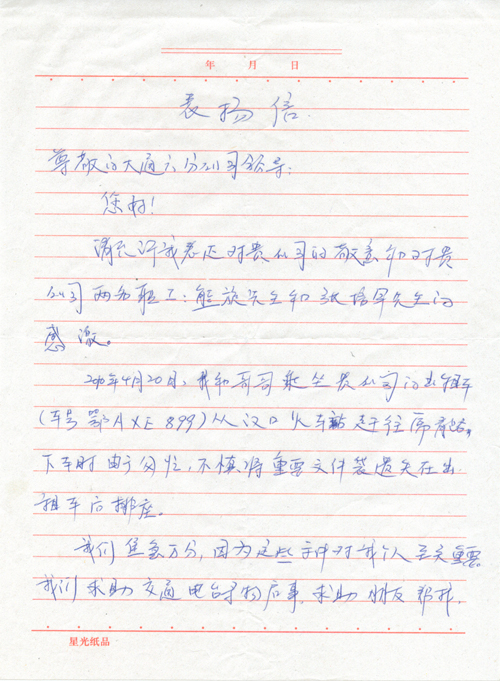 年 月 日
表扬信
尊敬的大通六分公司领导:
您好!
请允许我表达对贵公司的敬意和对贵
公司两名职工:熊放先生和张培军先生的
感激。
年4月20日,我和哥哥乘坐贵公司的出租车
(车号鄂AXE899)从汉口火车站赶往
下车时由于匆忙,不慎将重要文件袋遗失在出
租车后排座。
我们焦急万分,因为这些文件对我个人至关重要。
我们求助交通电台寻物启事,求助朋友帮找,
星光纸品